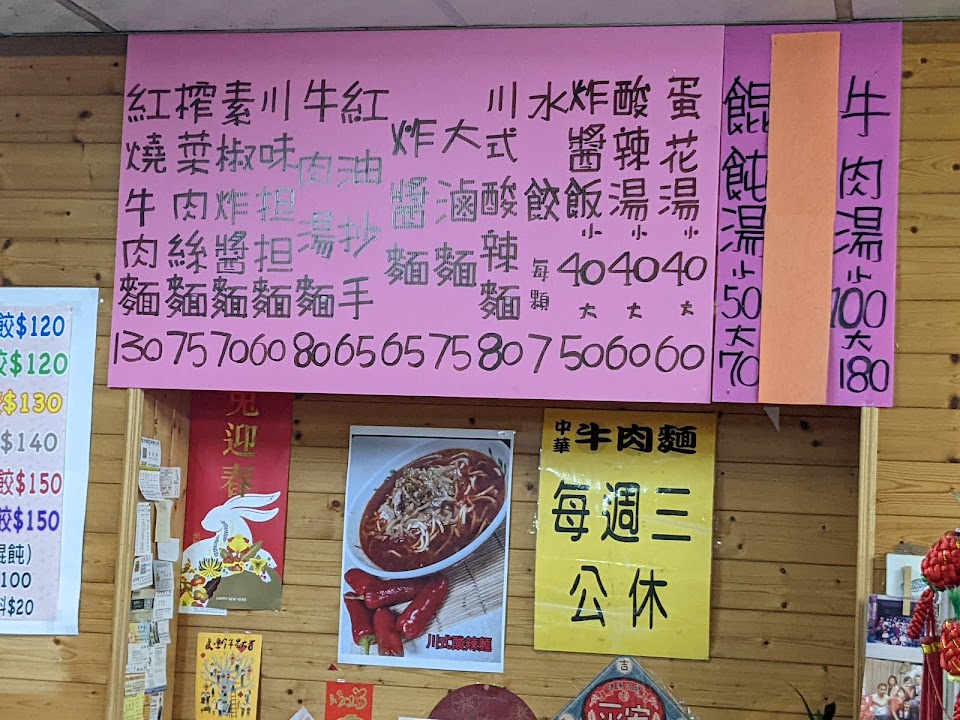 紅燒牛肉麵 130
榨菜肉絲麵 75
素椒炸醬麵 70
川味担担麵 60
牛肉湯麵 80
紅油抄手 65
炸醬麵 65
大滷麵 75
川式酸辣麵 80
水餃 每顆 7
炸醬飯 小 40 大 50
酸辣湯 小 40 大 60
蛋花湯 小 40 大 60
餛飩湯 小 50 大 70
牛肉湯 小 100 大 180
餃$120
餃$120
$130
$140
餃$150
餃$150
餛飩)
100
料$20
兔迎春
HAPPY NEW YEAR
川式酸辣麵
中華 牛肉麵
每週三
公休
吉